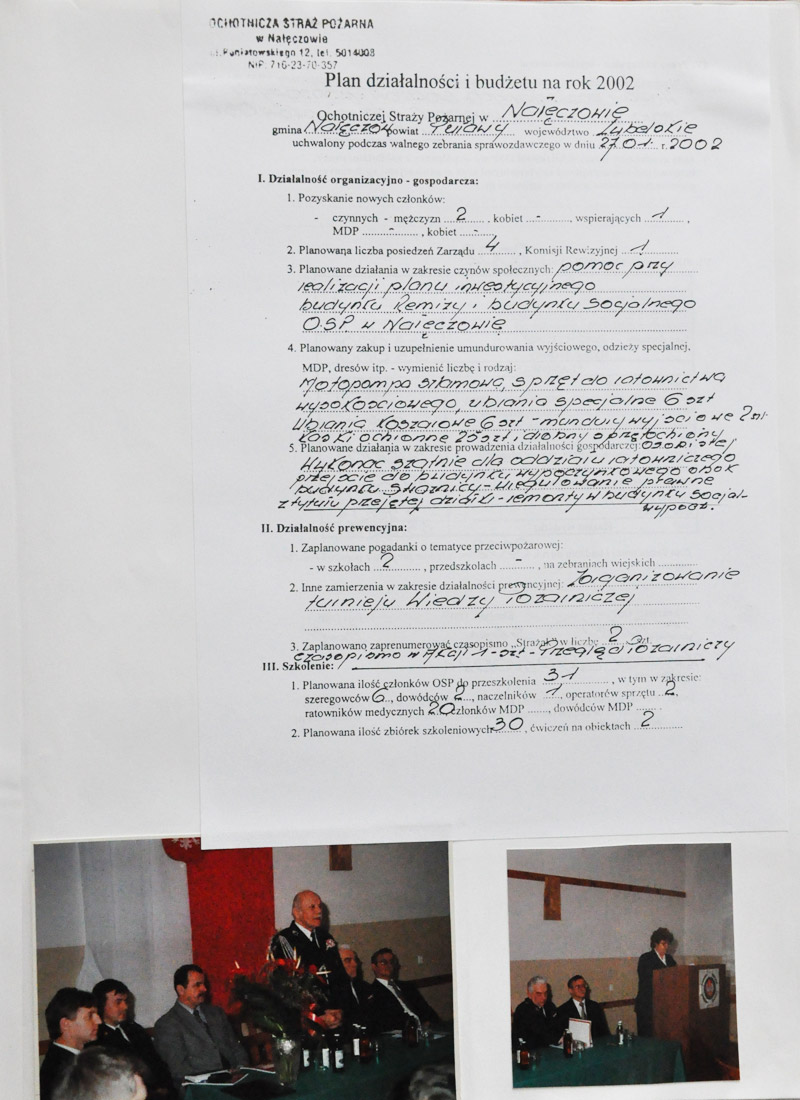 OCHOTNICZA STRAŻ POŻARNA
w Nałęczowie
ul. Poniatowskiego 12, tel. 5014008
NIP. 716-23-70-357
Plan działalności i budżetu na rok 2002
Ochotniczej Straży Pożarnej w Nałęczowie
gmina Nałęczów powiat Puławy województwo Lubelskie
uchwalony podczas walnego zebrania sprawozdawczego w dniu 27.01. r. 2002
I. Działalność organizacyjno - gospodarcza:
1. Pozyskanie nowych członków:
- czynnych - mężczyzn 2, kobiet -, wspierających 1,
MDP -, kobiet -
2. Planowana liczba posiedzeń Zarządu 4, Komisji Rewizyjnej 1
3. Planowane działania w zakresie czynów społecznych: pomoc przy
realizacji planu inwestycyjnego
budynku Remizy i budynku socjalnego
O.S.P. w Nałęczowie
4. Planowany zakup i uzupełnienie umundurowania wyjściowego, odzieży specjalnej,
MDP, dresów itp. - wymienić liczbę i rodzaj:
Motopompa szlamowa, sprzęt do ratownictwa
wysokościowego, ubrania specjalne 6 szt
Ubrania koszarowe 6 szt - mundury wyjściowe 2 szt.
Kaski ochronne 25 szt i drobny sprzęt ochrony
5. Planowane działania w zakresie prowadzenia działalności gospodarczej: osobistej
Wykonać szatnie dla oddziału ratowniczego
przejście do budynku wypoczynkowego obok
budynku Strażnicy - Uregulowanie prawne
z tytułu przejętej działki - remonty w budynku socjal-
wypocz.
II. Działalność prewencyjna:
1. Zaplanowane pogadanki o tematyce przeciwpożarowej:
- w szkołach 2, przedszkolach -, na zebraniach wiejskich
2. Inne zamierzenia w zakresie działalności prewencyjnej: Zorganizowanie
turnieju Wiedzy Pożarniczej
3. Zaplanowano zaprenumerować czasopismo „Strażak” w liczbie 2 szt.
Czasopismo W Akcji 1 - szt - Przegląd Pożarniczy
III. Szkolenie:
1. Planowana ilość członków OSP do przeszkolenia 31, w tym w zakresie:
szeregowców 6, dowódców 2, naczelników 1, operatorów sprzętu 2,
ratowników medycznych 20 członków MDP, dowódców MDP
2. Planowana ilość zbiórek szkoleniowych 30, ćwiczeń na obiektach 2